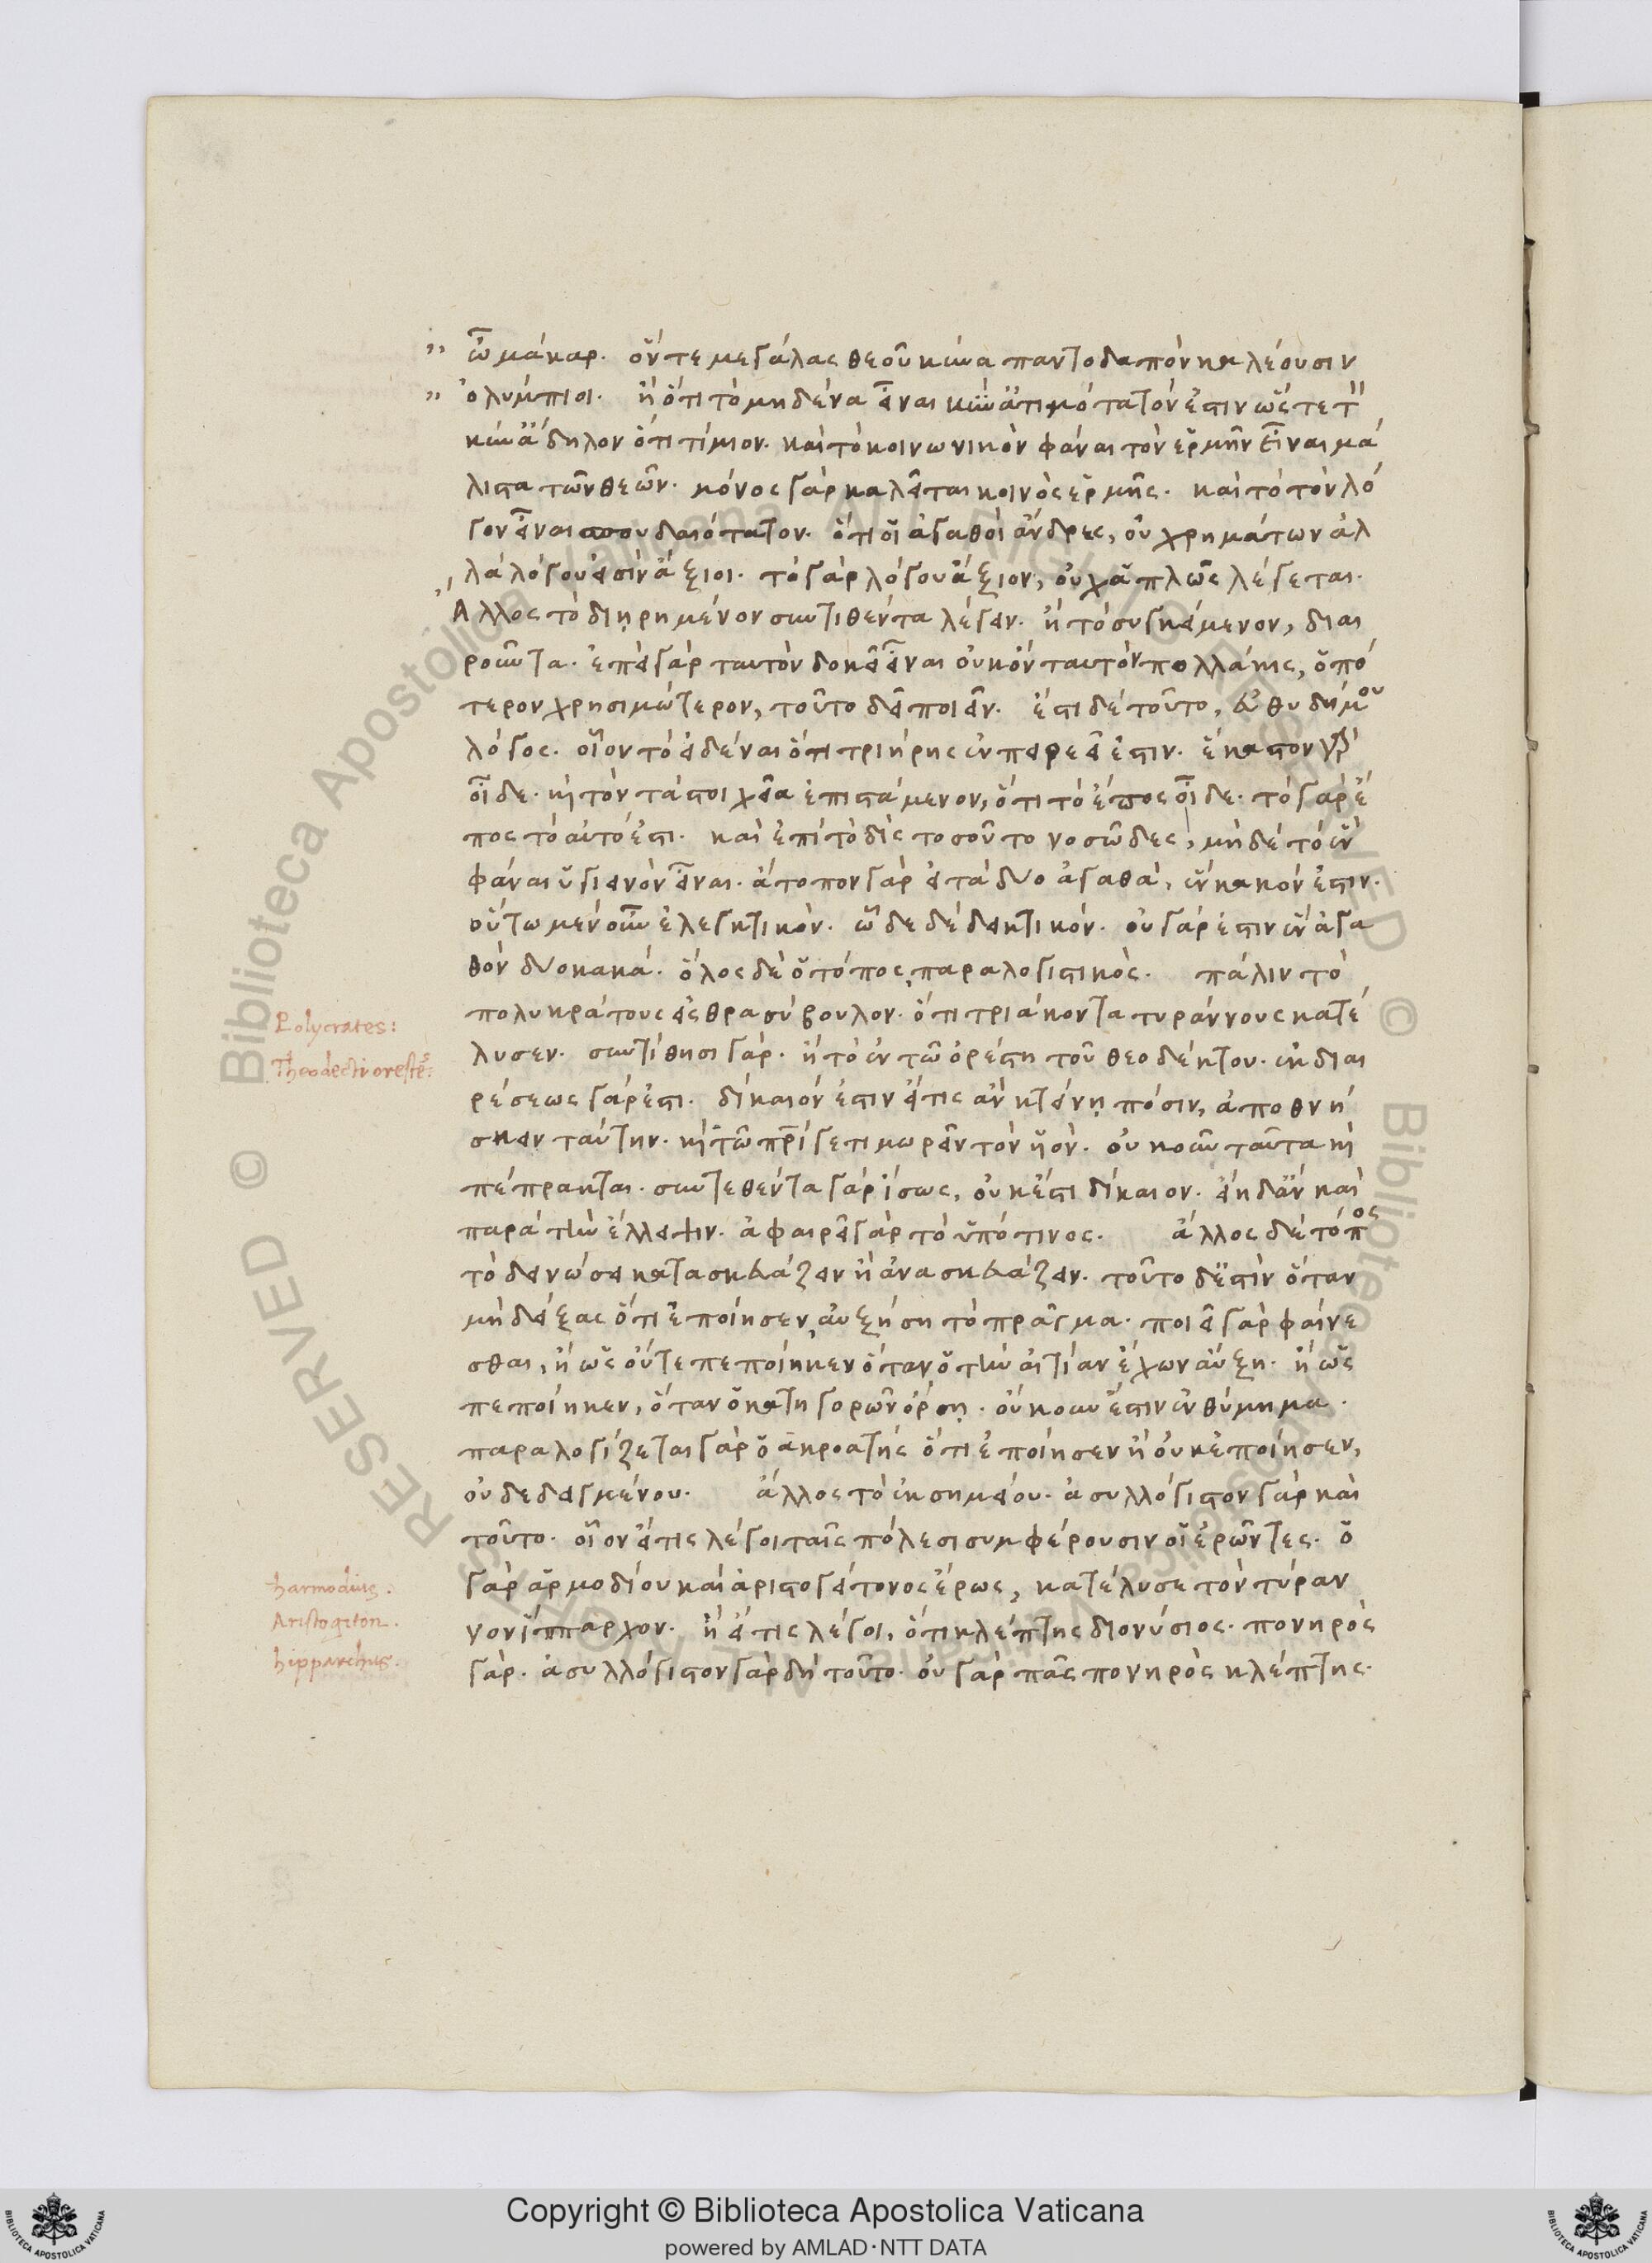 ὦ μάκαρ. ὅν τε μεγάλας θεοῦ κύνα παντοδαπὸν καλέουσιν
ὀλύμπιοι. ἢ ὅτι τὸ μηδένα εἶναι κύν' ἀτιμότατόν ἐστιν ὥστε τὸ
κύνα δῆλον ὅτι τίμιον. καὶ τὸ κοινωνικὸν φάναι τὸν ἑρμῆν εἶναι μά
λιστα τῶν θεῶν. μόνος γὰρ καλεῖται κοινὸς ἑρμῆς. καὶ τὸ τὸν λό
γον εἶναι σπουδαιότατον. ὅτι οἱ ἀγαθοὶ ἄνδρες, οὐ χρημάτων ἀλ
λὰ λόγου εἰσὶν ἄξιοι. τὸ γὰρ λόγου ἄξιον, οὐχ ἁπλῶς λέγεται.
Άλλος τὸ διῃρημένον συντιθέντα λέγειν. ἢ τὸ συγκείμενον, διαι
ροῦντα. ἐπεὶ γὰρ ταυτὸν δοκεῖ εἶναι οὐκ ὂν ταυτὸν πολλάκις, ὁπό
τερον χρησιμώτερον, τοῦτο δεῖ ποιεῖν. ἔστι δὲ τοῦτο, εὐθυδήμου
λόγος. οἷον τὸ εἰδέναι ὅτι τριήρης ἐν πειρεεῖ ἐστιν. ἕκαστον γὰρ
οἶδε. καὶ τὸν τὰ στοιχεῖα ἐπιστάμενον, ὅτι τὸ ἔπος οἶδε. τὸ γὰρ ἔ
πος τὸ αὐτό ἐστι. καὶ ἐπὶ τὸ δὶς τοσοῦτο νοσῶδες, μηδὲ τὸ ἓν
φάναι ὑγιεινὸν εἶναι. ἄτοπον γὰρ εἰ τὰ δύο ἀγαθὰ, ἓν κακόν ἐστιν.
οὕτω μὲν οὖν ἐλεγκτικόν. ὧδε δὲ δεικτικόν. οὐ γάρ ἐστιν ἓν ἀγα
θὸν δύο κακά. ὅλος δὲ ὁ τόπος, παραλογιστικός. πάλιν τὸ
πολυκράτους εἰς θρασύβουλον. ὅτι τριάκοντα τυράννους κατέ
λυσεν. συντίθησι γάρ. ἢ τὸ ἐν τῷ ὀρέστῃ τοῦ θεοδέκτου. ἐκ διαι
ρέσεως γάρ ἐστι. δίκαιόν ἐστιν εἴ τις ἂν κτείνῃ πόσιν, ἀποθνή
σκειν ταύτην. καὶ τῷ πατρί γε τιμωρεῖν τὸν υἱόν. οὐκοῦν ταῦτα καὶ
πέπρακται. συντεθέντα γὰρ ἴσως, οὐκέτι δίκαιον. εἴη δ' ἂν καὶ
παρὰ τὴν ἔλλειψιν. ἀφαιρεῖ γὰρ τὸ ὑπό τινος. ἄλλος δὲ τόπος
τὸ δεινώσει κατασκευάζειν ἢ ἀνασκευάζειν. τοῦτο δ' ἐστὶν ὅταν
μὴ δείξας ὅτι ἐποίησεν, αὐξήσῃ τὸ πρᾶγμα. ποιεῖ γὰρ φαίνε
σθαι, ἢ ὡς οὔτε πεποίηκεν ὅταν ὁ τὴν αἰτίαν ἔχων αὔξῃ. ἢ ὡς
πεποίηκεν, ὅταν ὁ κατηγορῶν ὀργῇ. οὐκοῦν ἐστὶν ἐνθύμημα.
παραλογίζεται γὰρ ὁ ἀκροατὴς ὅτι ἐποίησεν ἢ οὐκ ἐποίησεν,
οὐ δεδειγμένου. ἄλλος τὸ ἐκ σημείου. ἀσυλλόγιστον γὰρ καὶ
τοῦτο. οἷον εἴ τις λέγοι ταῖς πόλεσι συμφέρουσιν οἱ ἐρῶντες. ὁ
γὰρ ἁρμοδίου καὶ ἀριστογείτονος ἔρως, κατέλυσε τὸν τύραν
νον ἵππαρχον. ἢ εἴ τις λέγοι, ὅτι κλέπτης διονύσιος. πονηρὸς
γάρ. ἀσυλλόγιστον γὰρ δὴ τοῦτο. οὐ γὰρ πᾶς πονηρὸς κλέπτης.
Polycrates:
Theodecti oreste:
harmodius.
Aristogiton.
hipparchus.
RESERVED © Biblioteca Apostolica Vaticana
Copyright © Biblioteca Apostolica Vaticana
powered by AMLAD·NTT DATA
BIBLIOTECA APOSTOLICA VATICANA
BIBLIOTECA APOSTOLICA VATICANA